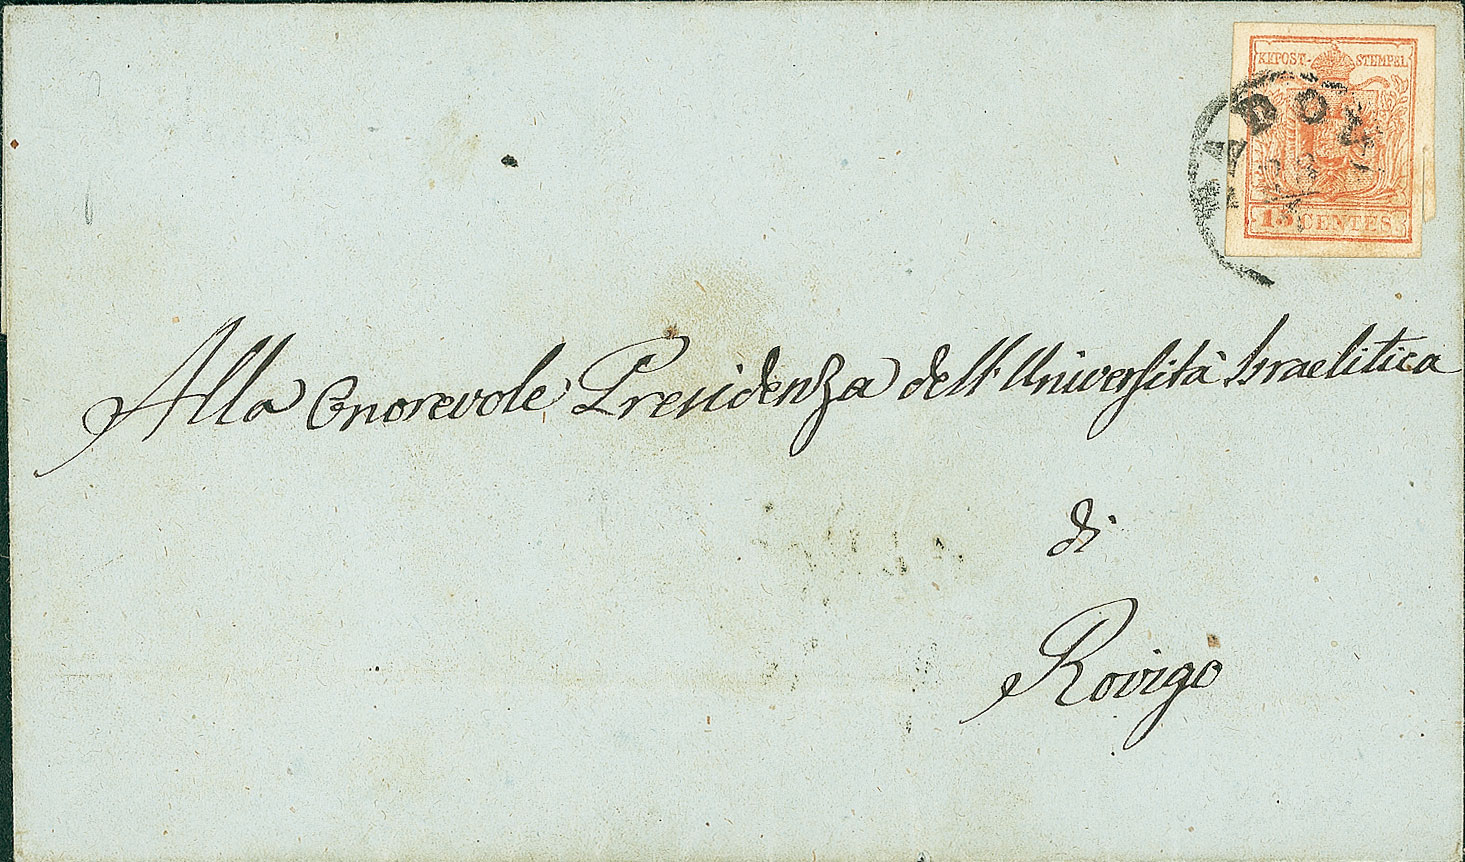 KKPOST-STEMPEL
PADOVA
28
15 CENTES
Alla Onorevole Presidenza dell'Università Israelitica
di
Rovigo